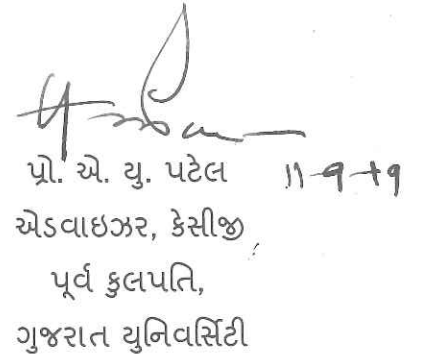 પ્રો. એ. યુ. પટેલ 11-9-19
એડવાઇઝર, કેસીજી
પૂર્વ કુલપતિ,
ગુજરાત યુનિવર્સિટી